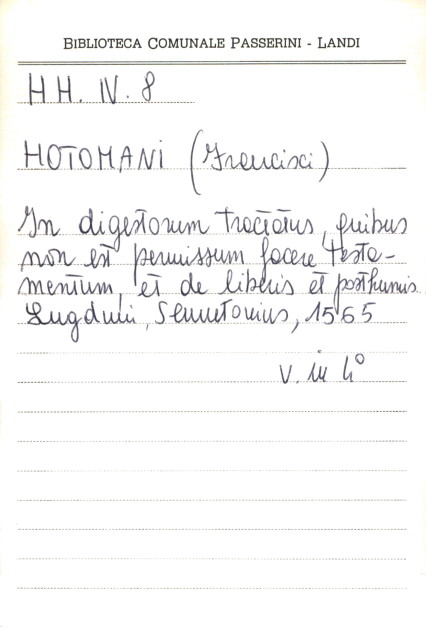 BIBLIOTECA COMUNALE PASSERINI - LANDI
HH. IV. 8
HOTOMANI (Francisci)
In digestorum tractatus, quibus
non est permissum facere testa-
mentum, et de liberis et posthumis
Lugduni, Sennetonius, 1565
V. in 4°